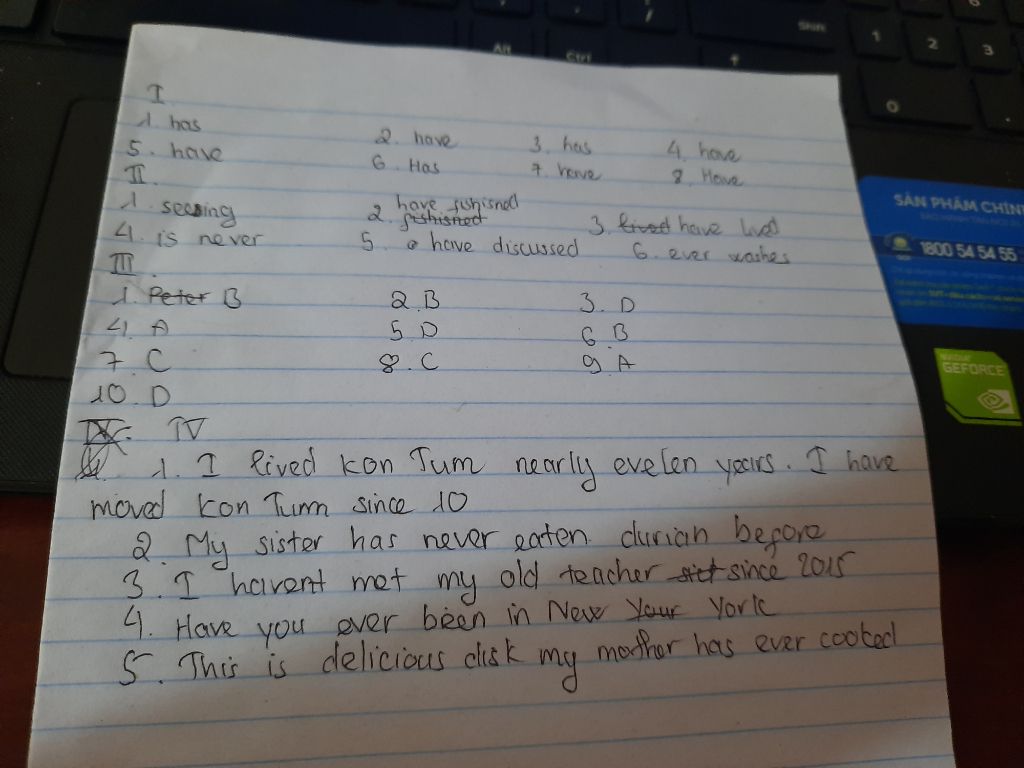 Alt
Ctrl
Shift
1
2
3
0
I
1. has
2. have
3. has
4. have
5. have
6. Has
7. have
8. Have
II
have fishisned
1. seesing
2. fishisned
3. lived have lived
4. is never
5. have discussed
6. ever washes
III.
1. Peter B
2. B
3. D
4. A
5. D
6. B
7. C
8. C
9. A
10. D
IV
1. I lived Kon Tum nearly evelen years. I have
moved Kon Tum since 10
2. My sister has never eaten durian before
3. I havent met my old teacher since 2015
4. Have you ever been in New Your York
5. This is delicious disk my mother has ever cooked
SẢN PHẨM CHÍN
1800 54 54 55
GEFORCE